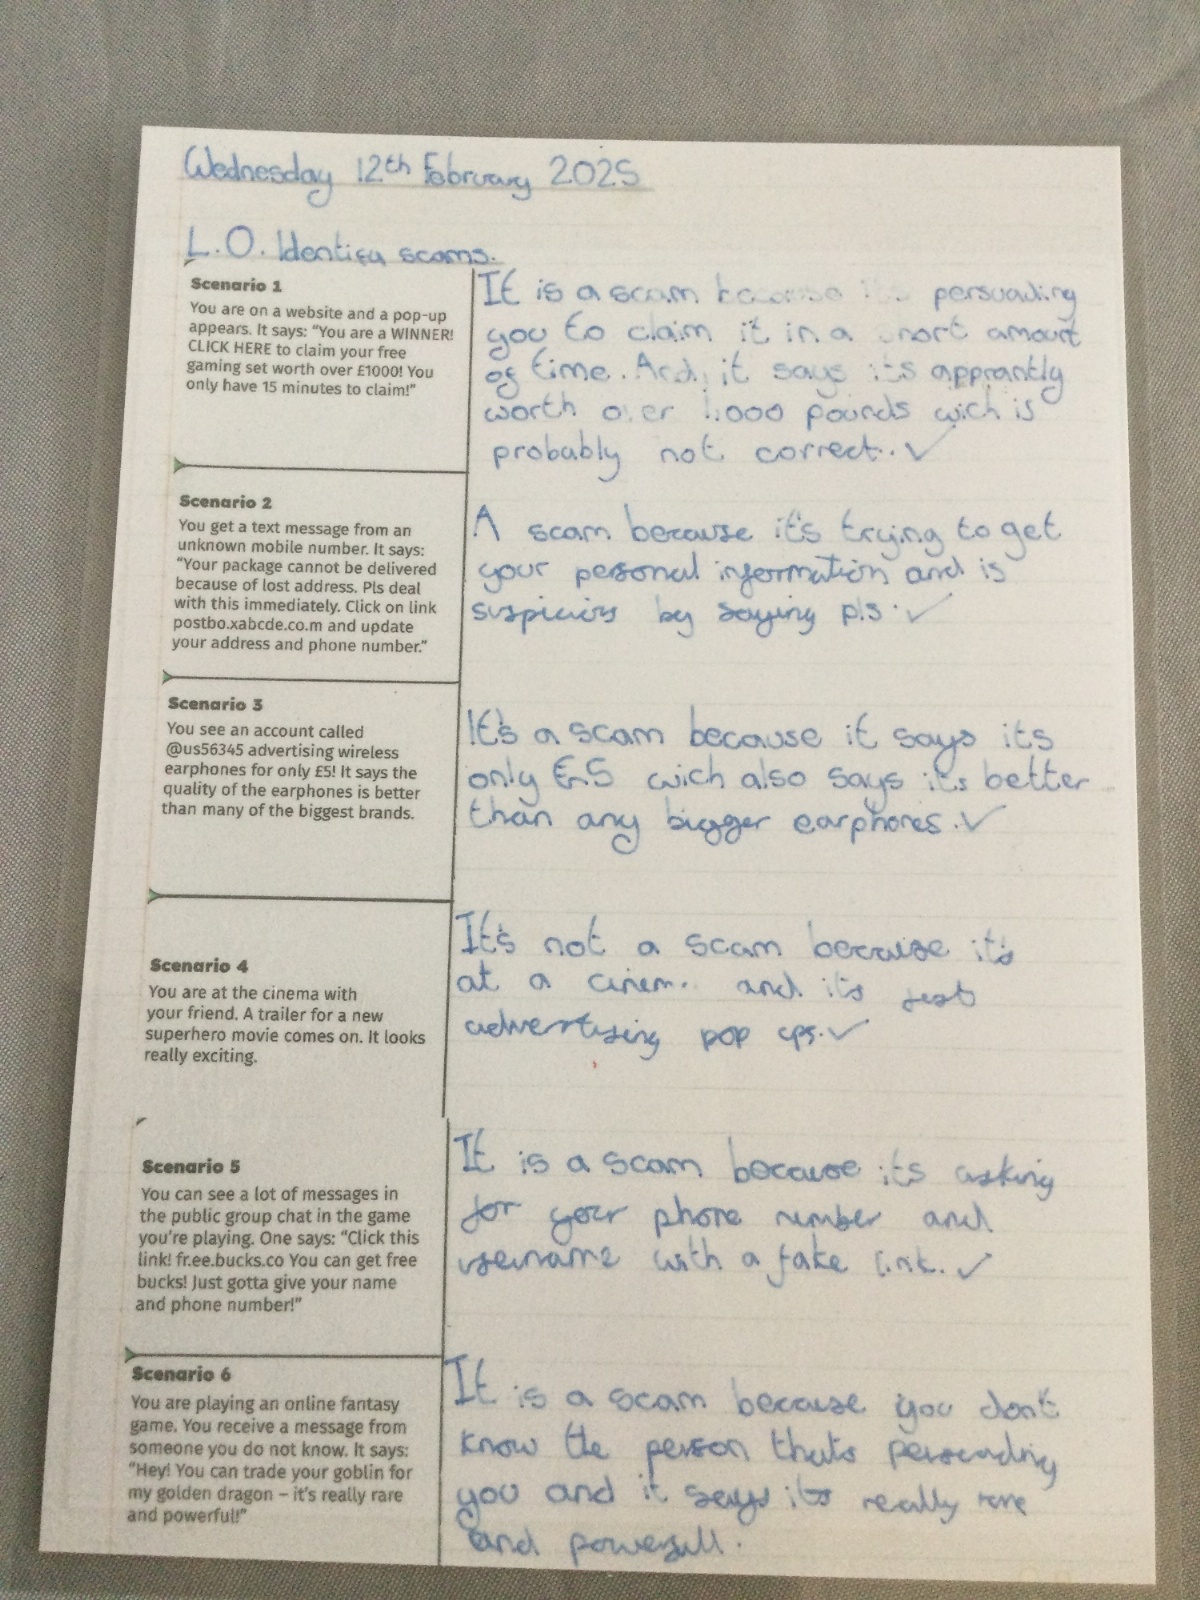 Wednesday 12th February 2025
L.O. Identify scams.
Scenario 1
You are on a website and a pop-up
appears. It says: “You are a WINNER!
CLICK HERE to claim your free
gaming set worth over £1000! You
only have 15 minutes to claim!”
It is a scam because its persuading
you to claim it in a short amount
of time. And, it says its apprantly
worth over 1,000 pounds wich is
probably not correct. ✓
Scenario 2
You get a text message from an
unknown mobile number. It says:
“Your package cannot be delivered
because of lost address. Pls deal
with this immediately. Click on link
postbo.xabcde.co.m and update
your address and phone number.”
A scam because it's trying to get
your personal information and is
by saying pls. ✓
Scenario 3
You see an account called
@us56345 advertising wireless
earphones for only £5! It says the
quality of the earphones is better
than many of the biggest brands.
It's a scam because it says its
only £5 wich also says its better
than any bigger earphones. ✓
Scenario 4
You are at the cinema with
your friend. A trailer for a new
superhero movie comes on. It looks
really exciting.
It's not a scam because it's
at a and its just
advertising pop ups. ✓
Scenario 5
You can see a lot of messages in
the public group chat in the game
you’re playing. One says: “Click this
link! fr.ee.bucks.co You can get free
bucks! Just gotta give your name
and phone number!”
It is a scam because its asking
for your phone number and
username with a fake link. ✓
Scenario 6
You are playing an online fantasy
game. You receive a message from
someone you do not know. It says:
“Hey! You can trade your goblin for
my golden dragon – it’s really rare
and powerful!”
It is a scam because you dont
know the person thats
you and it says its really rare
and powerfull.